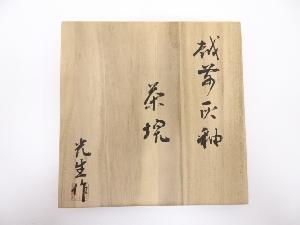 越前灰釉
茶埦
光生作